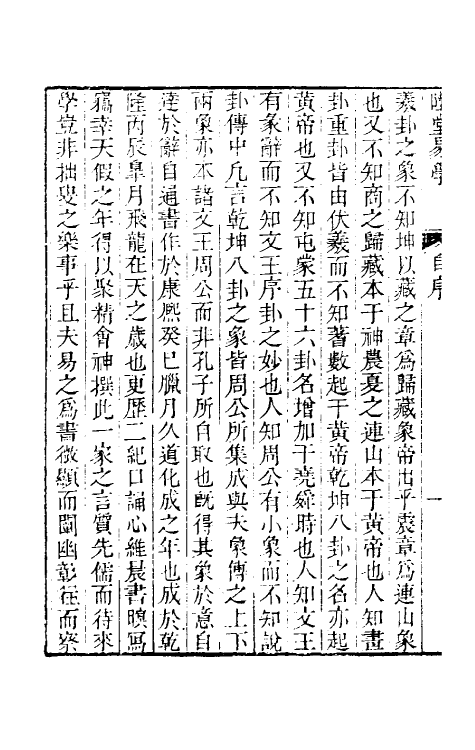 堂易學
自序
一
羲卦之象不知坤以藏之章爲歸藏象帝出乎震章爲連山象
也又不知商之歸藏本于神農夏之連山本于黃帝也人知畫
卦重卦皆由伏羲而不知蓍數起于黃帝乾坤八卦之名亦起
黃帝也又不知屯蒙五十六卦名增加于堯舜時也人知文王
有彖辭而不知文王序卦之妙也人知周公有小象而不知說
卦傳中凡言乾坤八卦之象皆周公所集成與大象傳之上下
兩象亦本諸文王周公而非孔子所自取也旣得其象於意自
達於辭自通書作於康熈癸巳臘月久道化成之年也成於乾
隆丙辰臯月飛龍在天之歲也更歷二紀口誦心維晨書暝寫
竊幸天假之年得以聚精會神撰此一家之言質先儒而待來
學豈非拙叟之樂事乎且夫易之爲書微顯而闡幽彰往而察